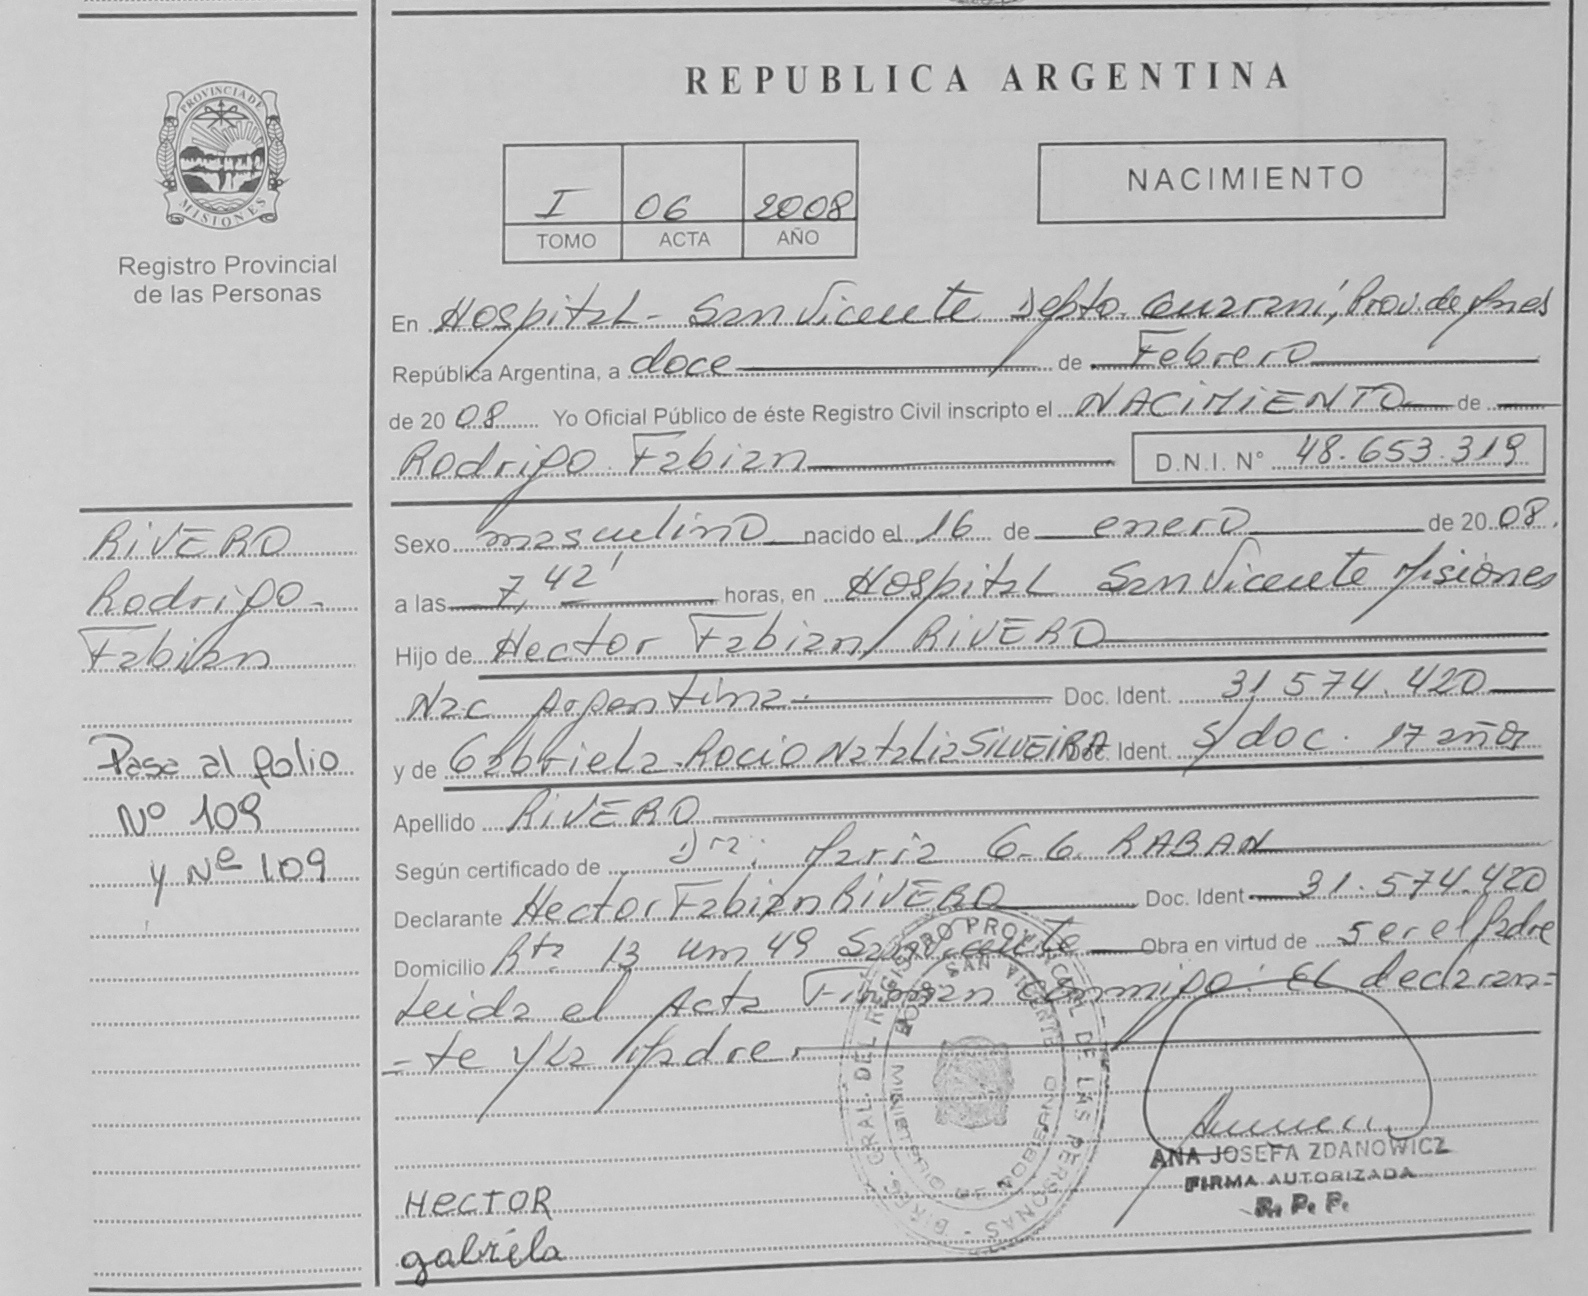 REPUBLICA ARGENTINA
PROVINCIA DE
MISIONES
Registro Provincial
de las Personas
I 06 2008
TOMO ACTA AÑO
NACIMIENTO
En Hospital - San Vicente Depto. Guarani, Prov. de Mnes
República Argentina, a doce de Febrero
de 2008 Yo Oficial Público de éste Registro Civil inscripto el NACIMIENTO de
Rodrigo Fabian D.N.I. N° 48.653.319
RIVERO
Rodrigo-
Fabian
Pase al folio
Nº 109
y Nº 109
Sexo masculino nacido el 16 de enero de 2008.
a las 7,42' horas, en Hospital San Vicente Misiones
Hijo de Hector Fabian RIVERO
Nac Argentina- Doc. Ident. 31 574.420
y de Gabriela Rocio Natalia SILVEIRA Doc. Ident. S/doc. 17 años
Apellido RIVERO
Según certificado de Dra: Maria G. G. RABAN
Declarante Hector Fabian RIVERO Doc. Ident 31.574.420
Domicilio Rta 13 Km 49 San Vicente Obra en virtud de ser el Padre
Leida el Acta Firman conmigo: El declaran=
=te y la Madre.
DIREC. GRAL. DEL REGISTRO PROVINCIAL DE LAS PERSONAS
SAN VICENTE
MINISTERIO DE GOBIERNO
ANA JOSEFA ZDANOWICZ
FIRMA AUTORIZADA
R. P. P.
HECTOR
gabriela